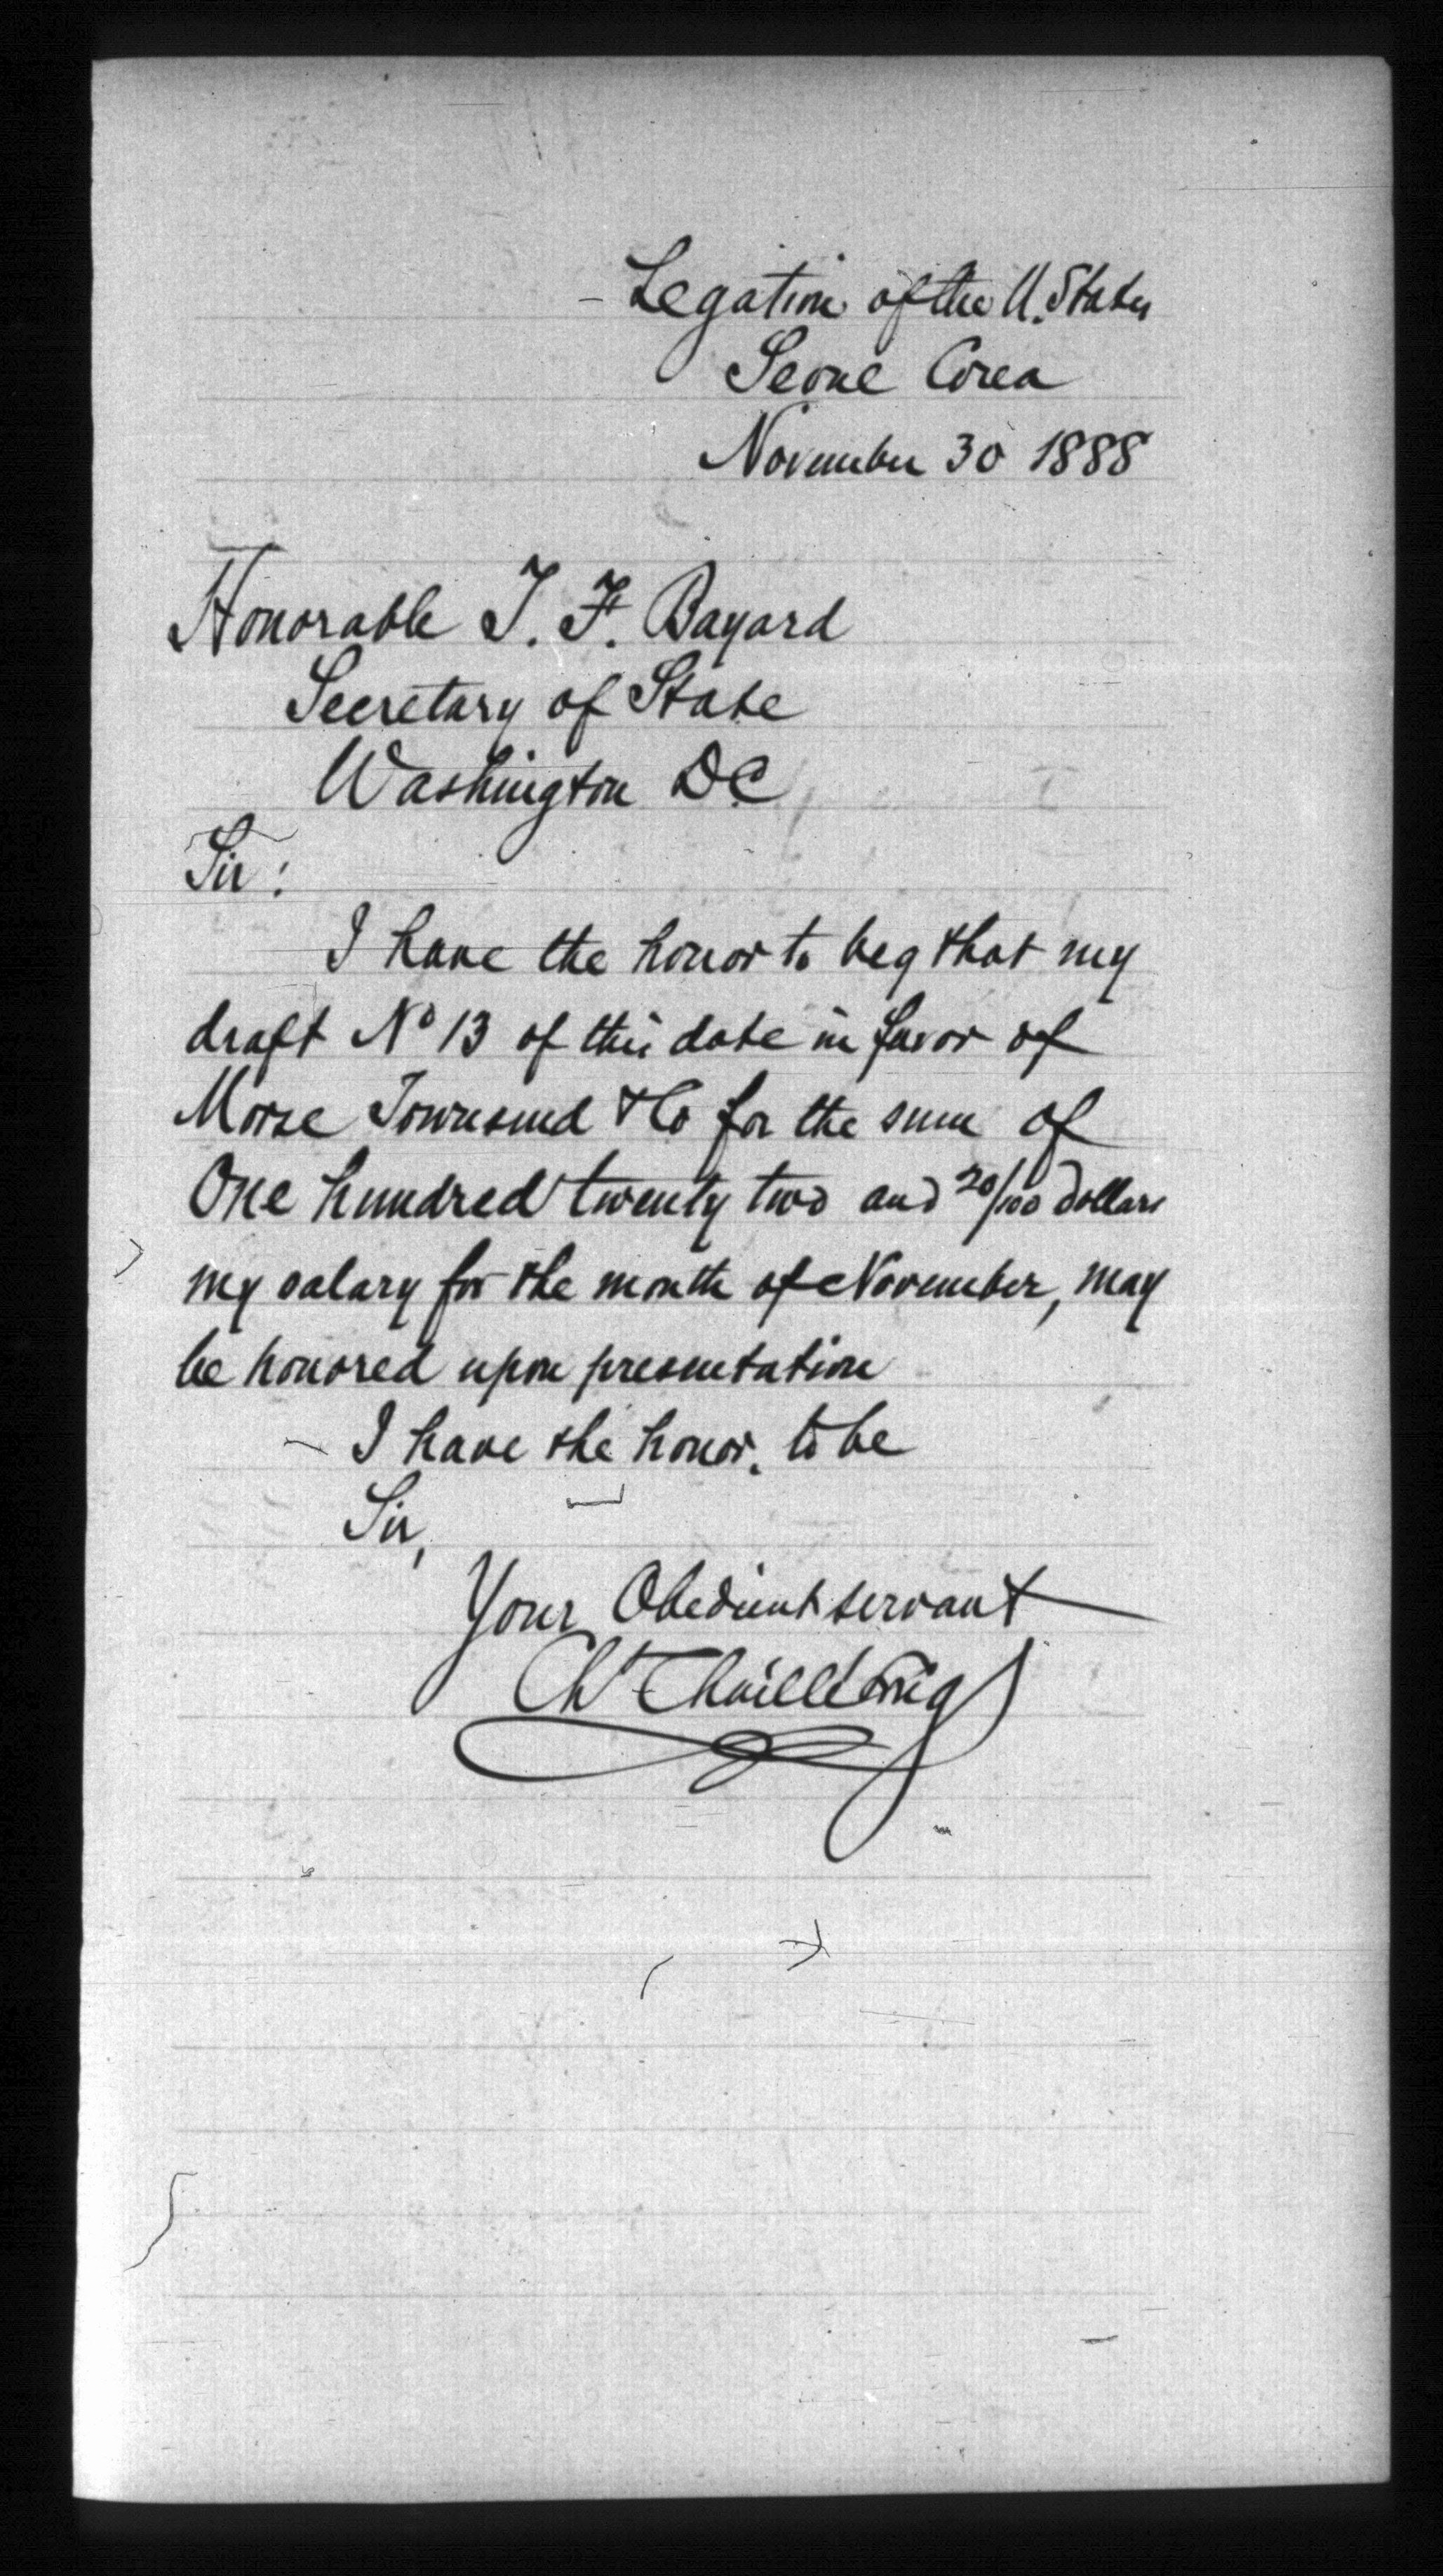 Legation of the U. States
Seoul Corea
November 30 1888
Honorable T. F. Bayard
Secretary of State
Washington DC
Sir:
I have the honor to beg that my
draft No 13 of this date in favor of
Morse Townsend & Co for the sum of
One hundred twenty two and 20/100 dollars
my salary for the month of November, may
be honored upon presentation
I have the honor, to be
Sir,
Your Obedient servant
Ch Chaillé Long